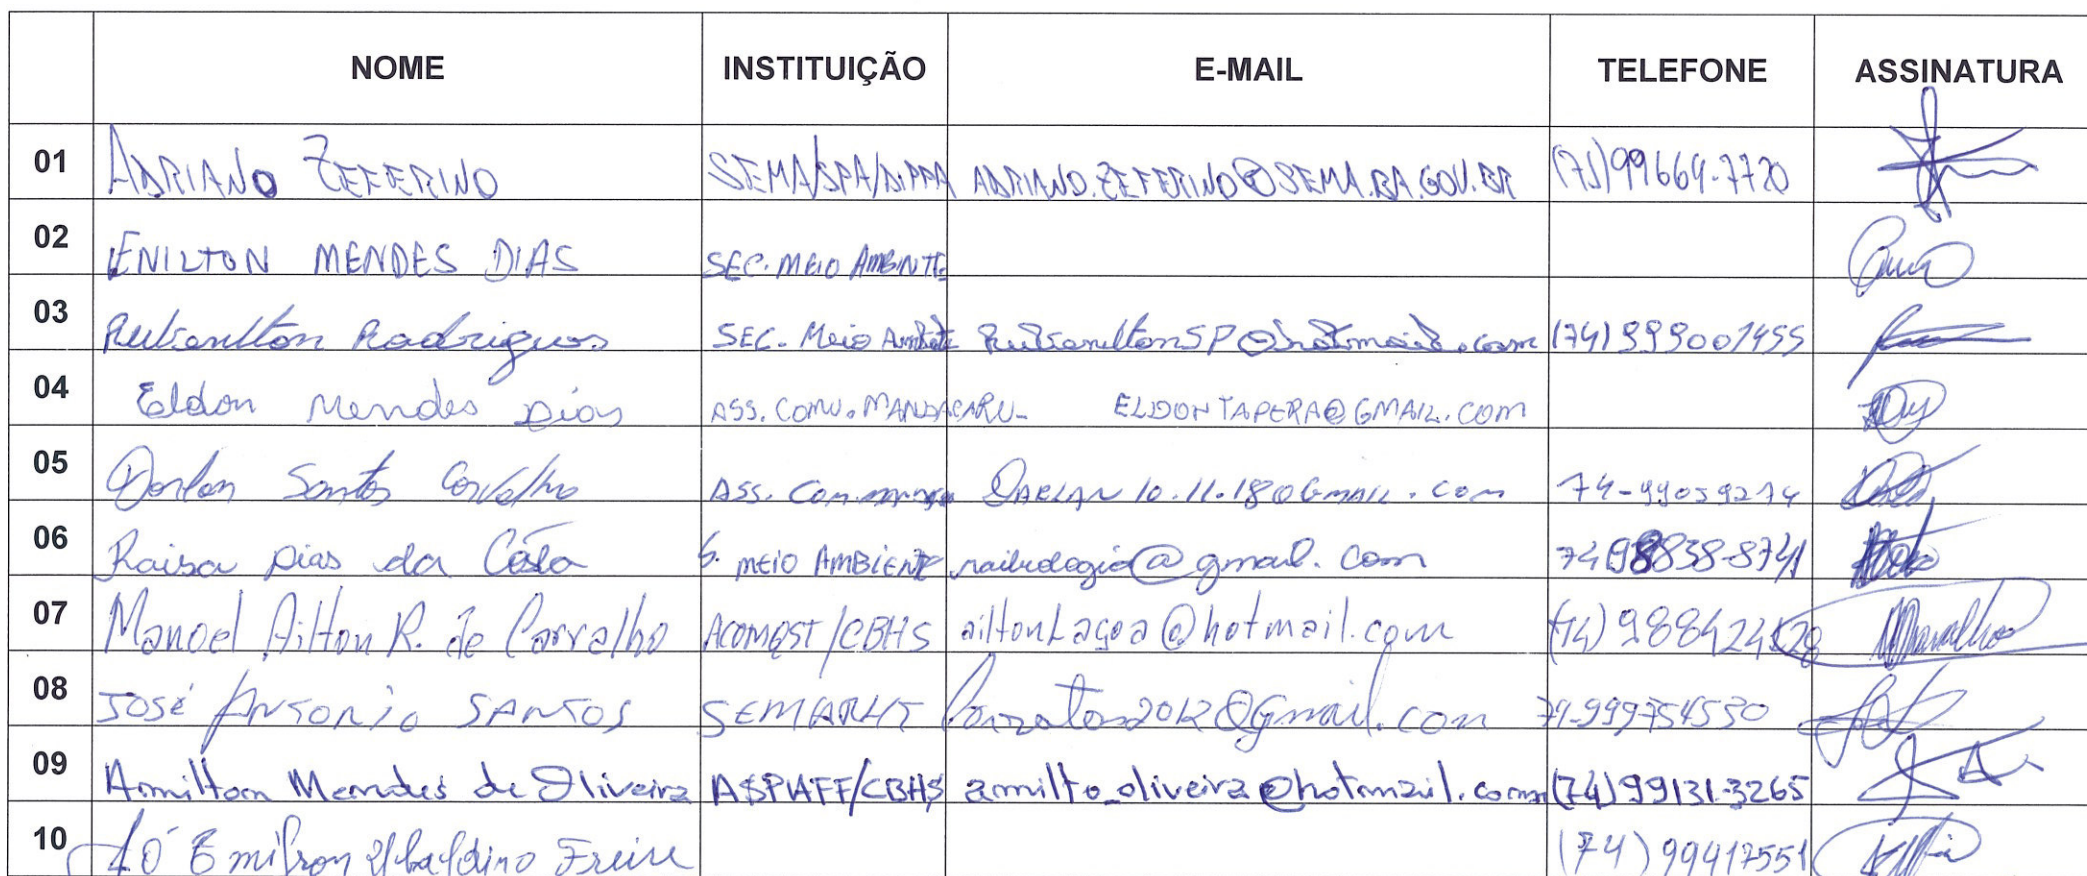 NOME INSTITUIÇÃO E-MAIL TELEFONE ASSINATURA
01 ADRIANO ZEFERINO SEMA/SPA/DIPPA ADRIANO.ZEFERINO@SEMA.BA.GOV.BR (71)99664-7720
02 ENILTON MENDES DIAS SEC. MEIO AMBINTE
03 Rodrigues SEC. Meio (74)999001455
04 Eldon Mendes Dias ASS. COMU. MANDACARU- ELDONTAPERA@GMAIL.COM
05 Darlan Santos Carvalho ASS. Com. DARLAN10.11.18@GMAIL.com 74-99059274
06 Raisa Dias da Costa S. MEIO AMBIENTE raibiologia@gmail.com 74 98838-8741
07 Manoel Ailton R. de Carvalho ACOMQST/CBHS ailtonlagoa@hotmail.com
08 JOSÉ ANTONIO SANTOS SEMARHT 74-999754530
09 Amilton Mendes de Oliveira ASPIAFF/CBHS amilto_oliveira@hotmail.com (74)99131-3265
10 Freire (74)99412551